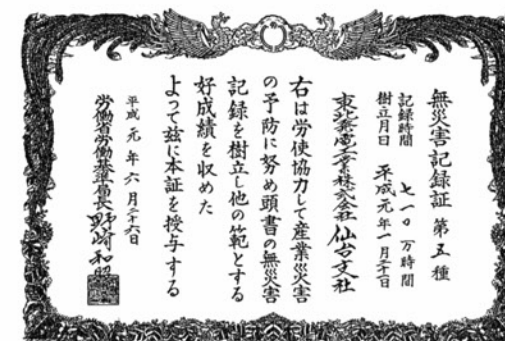 無災害記録証 第五種
記録時間 七一〇万時間
樹立月日 平成元年一月二十一日
東北発電工業株式会社 仙台支社
右は労使協力して産業災害
の予防に努め頭書の無災害
記録を樹立し他の範とする
好成績を収めた
よって茲に本証を授与する
平成元年六月二十六日
労働省労働基準局長 野崎和昭